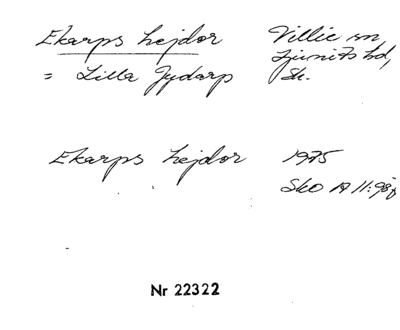 Ekarps hejdor Villie sn
Ljunits hd,
= Lilla Jydarp Sk.
Ekarps hejdor 1975
Sko A 11:98
Nr 22322